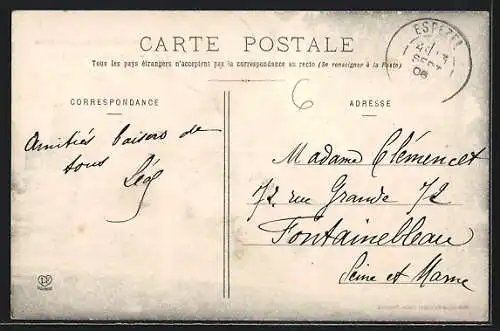 CARTE POSTALE
Tous les pays étrangers n'acceptent pas la correspondance au recto (Se renseigner à la Poste)
ESPEZEL
SEPT
06
CORRESPONDANCE
ADRESSE
6
Amitiés baisers de
tous
Léo
Madame Clémencet
72 rue Grande 72
Fontainebleau
Seine et Marne